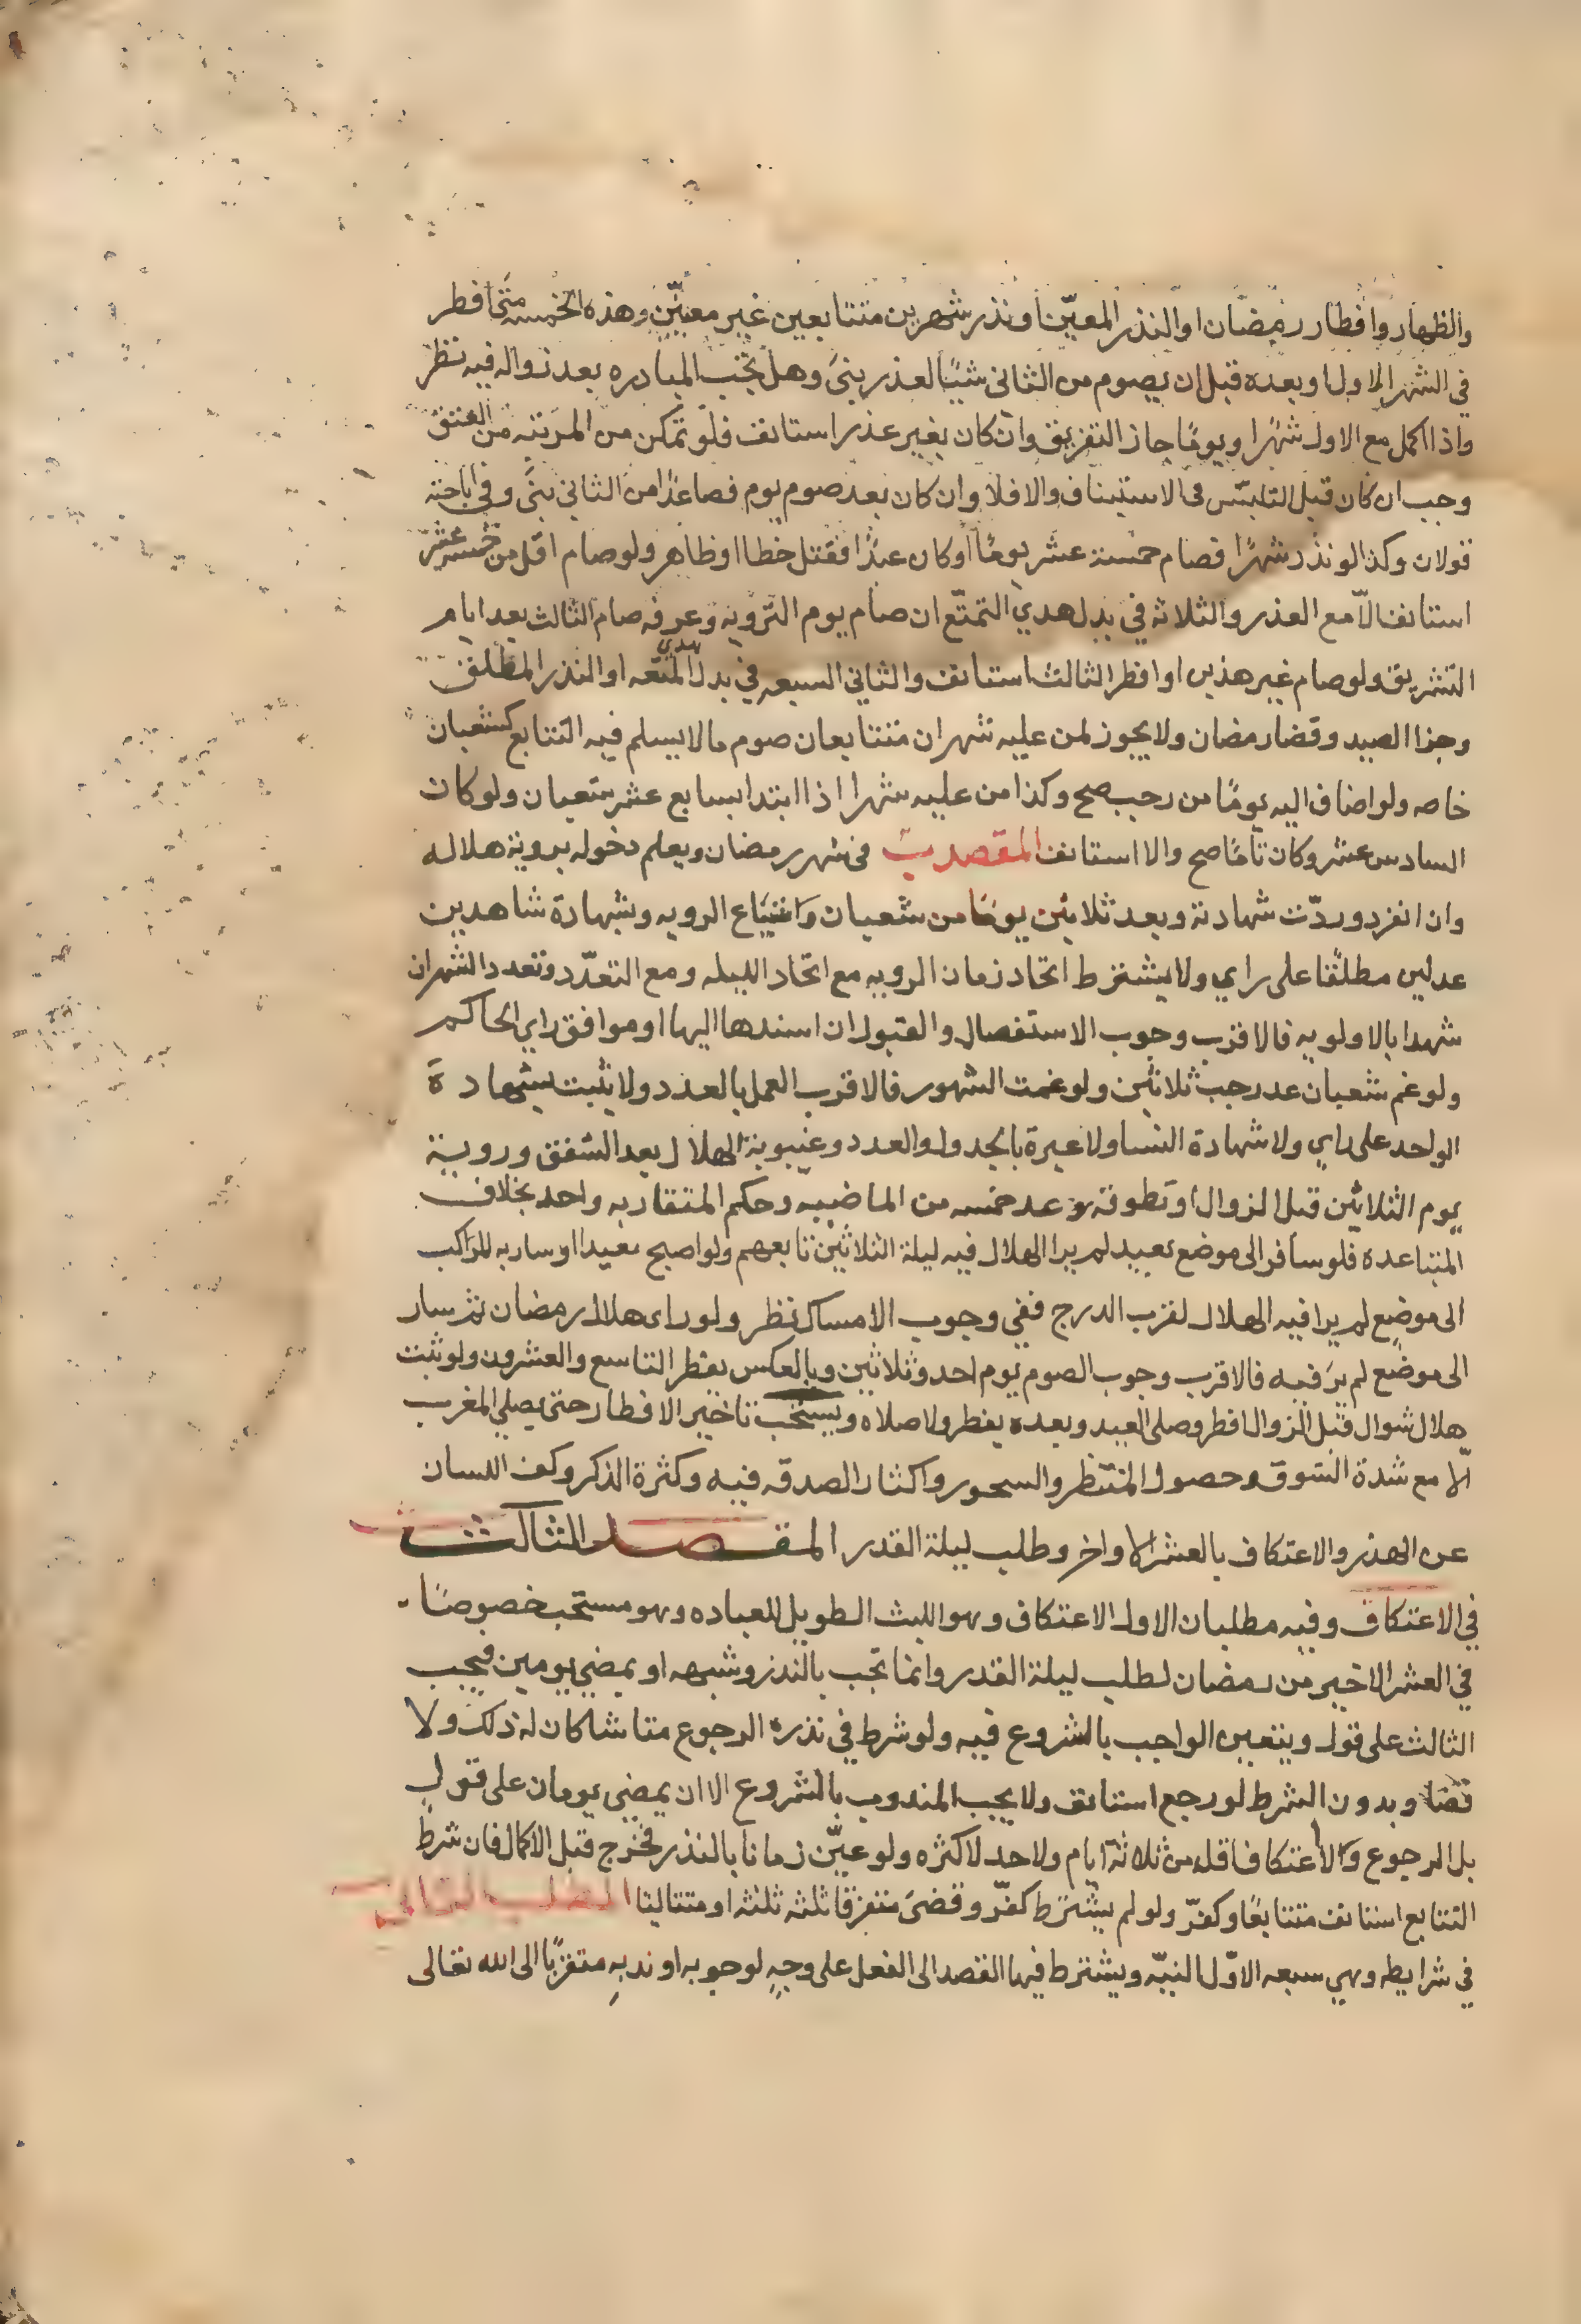 والظهار وافطار رمضان او النذر المعيّن او نذر شهرين متتابعين غير معينين وهذه الخمسه متى افطر
في الشهر الاول او بعده قبل ان يصوم من الثاني شيئا لعذر بنى وهل يجب المبادره بعد زواله فيه نظر
واذا اكمل مع الاول شهرا ويوما جاز التفريق وان كان بغير عذر استانف فلو تمكن من المرتبه من العتق
وجب ان كان قبل التلبّس في الاستيناف والا فلا وان كان بعد صوم يوم فصاعدا من الثاني بنى وفي اباحته
قولان وكذا لو نذر شهرا فصام خمسة عشر يوما او كان عبدا فقتل خطا او ظاهر ولو صام اقل من خمسه عشر
استانف الّا مع العذر والثلاثه في بدل هدي التمتّع ان صام يوم التروية وعرفه صام الثالث بعد ايام
التشريق ولو صام غير هذين او افطر الثالث استانف والثاني السبعه في بدل هدي المتعه او النذر المطلق
وجزا الصيد وقضا رمضان ولا يجوز لمن عليه شهران متتابعان صوم مالا يسلم فيه التتابع كشعبان
خاصه ولو اضاف اليه يوما من رجب صح وكذا من عليه شهرا اذا ابتدا بسابع عشر شعبان ولو كان
السادس عشر وكان تامّا صح والا استانف المقصد ب في شهر رمضان ويعلم دخوله بروية هلاله
وان انفرد وردّت شهادته وبعد ثلاثين يوما من شعبان واشياع الرويه وشهادة شاهدين
عدلين مطلقا على راي ولا يشترط اتحاد زمان الرويه مع اتحاد الليله ومع التعدّد وتعدد الشهران
شهدا بالاولويه فالاقرب وجوب الاستفصال والقبول ان اسندها اليها او موافق راي الحاكم
ولو غم شعبان عد رجب ثلاثين ولو غمت الشهور فالاقرب العمل بالعدد ولا يثبت بشهادة
الواحد على راي ولا شهادة النسا ولا عبرة بالجدول والعدد وغيبوبة الهلال بعد الشفق وروية
يوم الثلاثين قبل الزوال او تطوقه وعد خمسه من الماضيه وحكم المتقاربه واحد بخلاف
المتباعده فلو سافر الى موضع بعيد لم ير الهلال فيه ليلة الثلاثين تابعهم ولو اصبح معيدا او سار به المراكب
الى موضع لم يرا فيه الهلال لقرب الدرج ففي وجوب الامساك نظر ولو راى هلال رمضان ثم سار
الى موضع لم ير فيه فالاقرب وجوب الصوم يوم احد وثلاثين وبالعكس يفطر التاسع والعشرون ولو ثبت
هلال شوال قبل الزوال افطر وصلى العيد وبعده يفطر ولا صلاه ويستحب تاخير الافطار حتى يصلي المغرب
الّا مع شدة الشوق وحصول المنتظر والسحور واكثار الصدقه فيه وكثرة الذكر وكف اللسان
عن الهذر والاعتكاف بالعشر الاواخر وطلب ليلة القدر المقصد الثالث
في الاعتكاف وفيه مطلبان الاول الاعتكاف وهو اللبث الطويل للعباده وهو مستحب خصوصا
في العشر الاخير من رمضان لطلب ليلة القدر وانما تجب بالنذر وشبهه او بمضي يومين فيجب
الثالث على قول ويتعين الواجب بالشروع فيه ولو شرط في نذره الرجوع متا شا كان له ذلك ولا
قضا وبدون الشرط لو رجع استانف ولا يجب المندوب بالشروع الا ان يمضي يومان على قول
بل الرجوع والاعتكاف اقله من ثلاثة ايام ولا حد لاكثره ولو عيّن زمانا بالنذر فخرج قبل الاكمال فان شرط
التتابع استانف متتابعا وكفّر ولو لم يشترط كفّر وقضى متفرقا ثلثه ثلثه او متتاليا المطلب الثاني
في شرايطه وهي سبعه الاوّل النيّه ويشترط فيها القصد الى الفعل على وجهٍ لوجوبه او ندبه متقربا الى الله تعالى